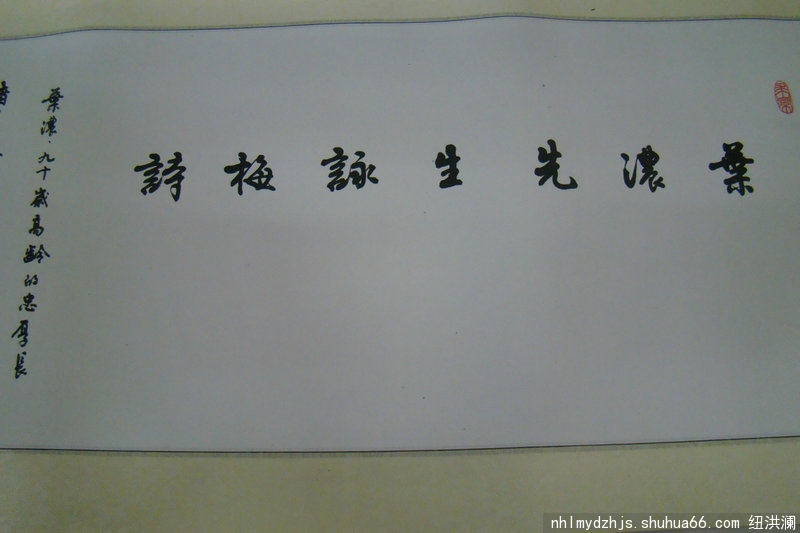 葉濃先生詠梅詩
葉濃·九十歲高齡的忠厚長
nhlmydzhjs.shuhua66.com 纽洪澜